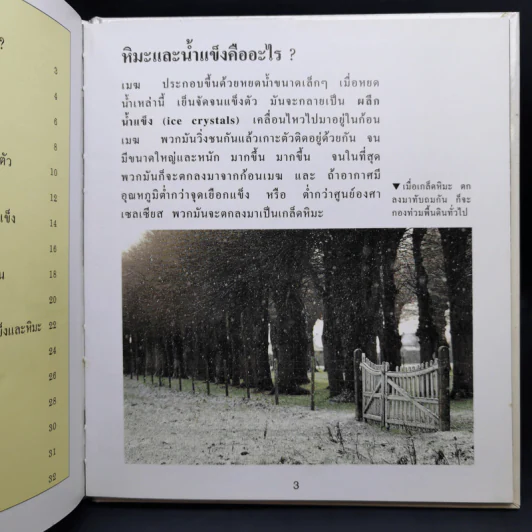 ?
3
5
6
8
ตัว 10
12
แข็ง 14
16
น 18
20
ข็งและหิมะ 22
24
26
28
30
31
32
หิมะและน้ำแข็งคืออะไร ?
เมฆ ประกอบขึ้นด้วยหยดน้ำขนาดเล็กๆ เมื่อหยด
น้ำเหล่านี้ เย็นจัดจนแข็งตัว มันจะกลายเป็น ผลึก
น้ำแข็ง (ice crystals) เคลื่อนไหวไปมาอยู่ในก้อน
เมฆ พวกมันวิ่งชนกันแล้วเกาะตัวติดอยู่ด้วยกัน จน
มีขนาดใหญ่และหนัก มากขึ้น มากขึ้น จนในที่สุด
พวกมันก็จะตกลงมาจากก้อนเมฆ และ ถ้าอากาศมี
อุณหภูมิต่ำกว่าจุดเยือกแข็ง หรือ ต่ำกว่าศูนย์องศา
เซลเซียส พวกมันจะตกลงมาเป็นเกล็ดหิมะ
▼ เมื่อเกล็ดหิมะ ตก
ลงมาทับถมกัน ก็จะ
กองท่วมพื้นดินทั่วไป
3